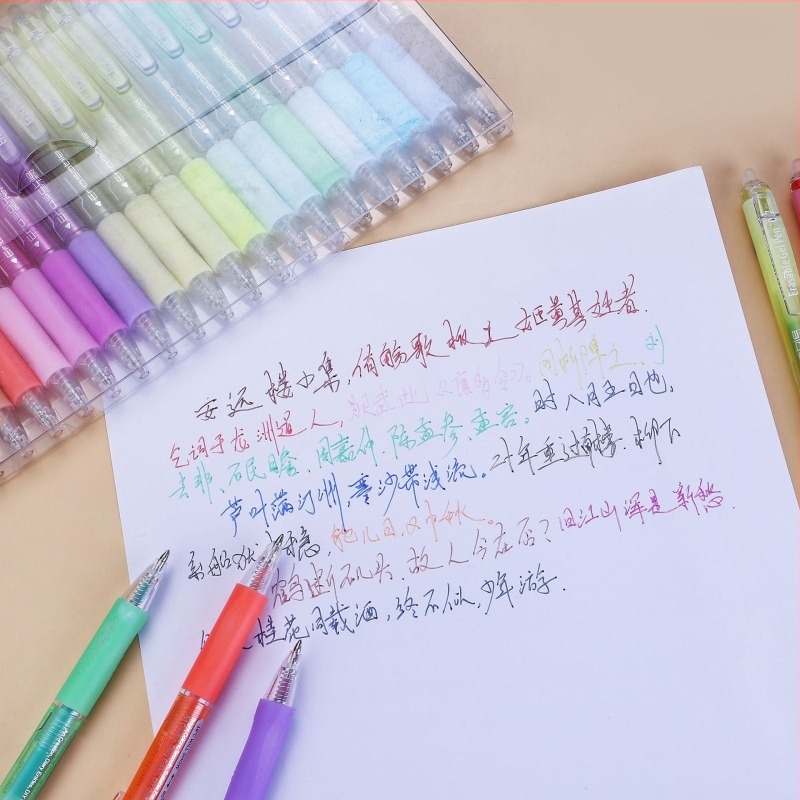 安远楼小集,侑觞歌板之姬黄其姓者.
乞词于龙洲道人,赋此 同柳阜之、刘
去非、石民瞻、周嘉仲、陈孟参、孟容。时八月五日也,
芦叶满汀洲,寒沙带浅流。二十年重过南楼.柳下
系船犹未稳,能几日,又中秋。
鹤断矶头.故人今在否?旧江山浑是新愁.
桂花同载酒,终不似,少年游.
Erasable Gel Pen